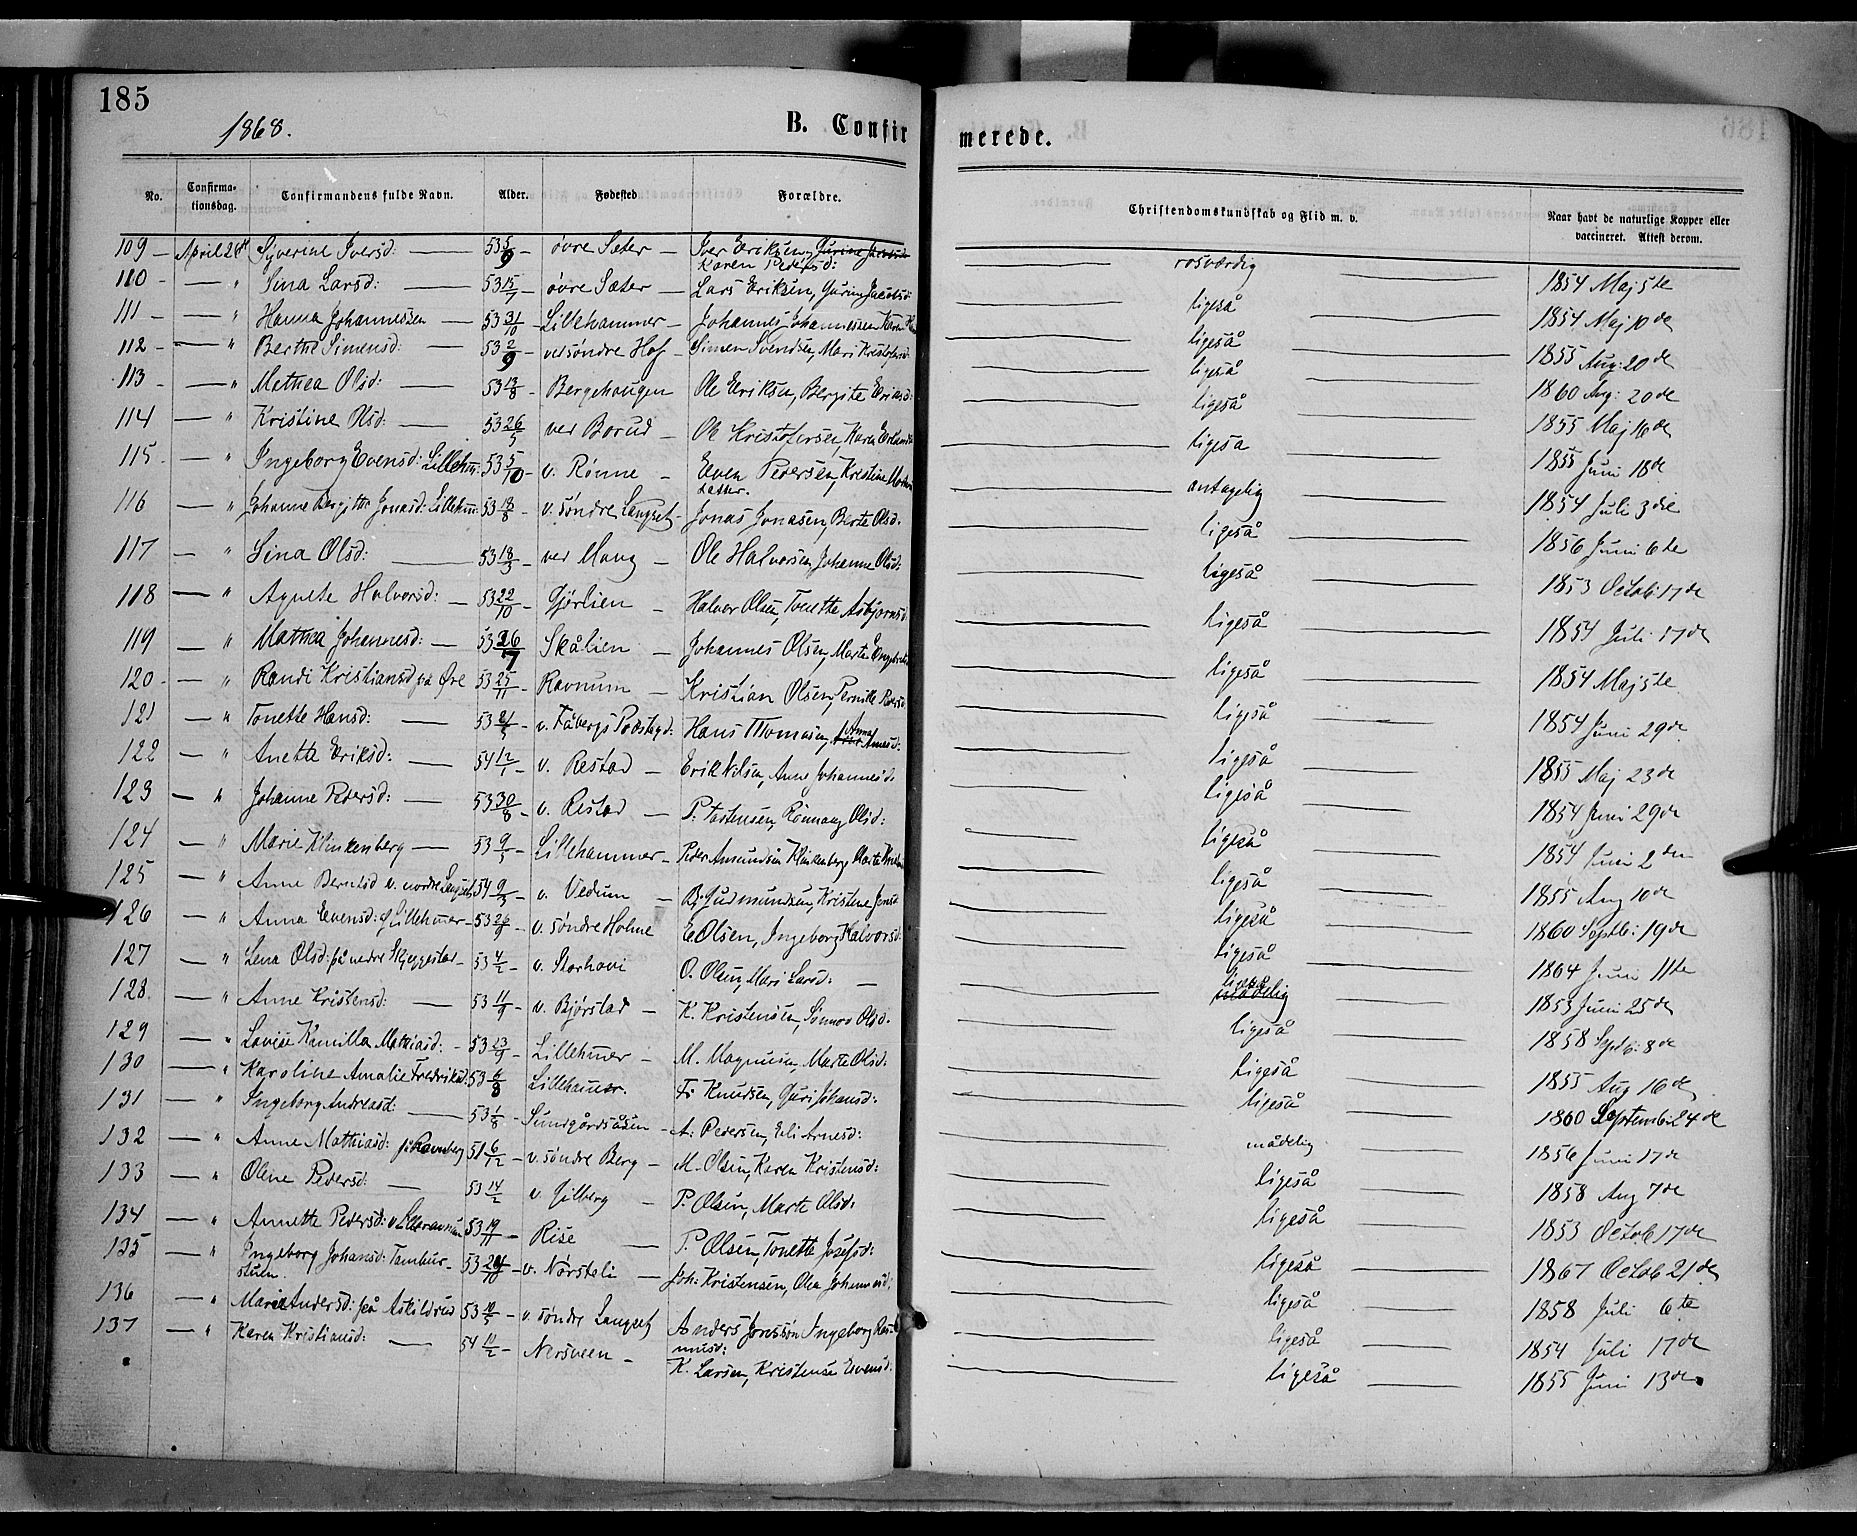 185
1868.
B. Confirmerede.
No. Confirmationsdag. Confirmandens fulde Navn. Alder. Fødested Forældre. Christendomskundskab og Flid m. v. Naar havt de naturlige Kopper eller vaccineret. Attest derom.
109 – April 26 Syverine Iversd: 53 5/9 – øvre Sæter – Iver Eriksen, Karen Pedersd: rosværdig 1854 Maj 5te
110 – " Sina Larsd: 53 15/7 – øvre Sæter – Lars Eriksen, Gurine Jacobsd: ligeså 1854 Maj 10de
111 – " Hanna Johannessen 53 31/10 – Lillehammer – Johannes Johannessen, Karen ligeså 1855 Aug: 20de
112 – " Berthe Simensd: 53 2/9 ver søndre Hof – Simen Svendsen, Mari Kristofersd: ligeså 1860 Aug: 20de
113 – " Mathea Olsd: 53 13/8 – Bergehaugen Ole Eriksen, Bergite Eriksd: ligeså 1855 Maj 16de
114 – " Kristine Olsd: 53 26/5 ver Borud – Ole Kristofersen, Karen ligeså 1855 Juni 18de
115 – " Ingeborg Evensd: Lillehm: 53 5/10 – v. Rønne – Even Pedersen, Kristine antagelig 1854 Juli 3die
116 – " Johanne Bergitte Jonasd: Lillehm: 53 18/8 – v. søndre Langset – Jonas Jonasen, Berte Olsd. ligeså 1856 Juni 6te
117 – " Lina Olsd: 53 18/3 – ver Moug – Ole Halvorsen, Johanne Olsd: ligeså 1853 Octob: 17de
118 – " Agnete Halvorsd: – 53 22/10 – Gjørlien – Halvor Olsen, Tonette Asbjørnsd: ligeså 1854 Juli 17de
119 – " Mathea Johannesd: – 53 26/7 Skålien – Johannes Olsen, Marte ligeså 1854 Maj 5te
120 – " Randi Kristiansd på Øre 53 25/11 – Ravnum – Kristian Olsen, Pernille Pedersd ligeså 1854 Juni 29de
121 – " Tonette Hansd: 53 – v. Fåbergs Præstegd: Hans Thomasen, Anna Arnesd: ligeså 1855 Maj 23de
122 – " Anette Eriksd: 54 12/1 – v. Restad – Erik Nilsen, Anne Johannesd: ligeså 1854 Juni 29de
123 – " Johanne Pedersd: 53 30/8 – v. Restad – P. Tostensen, Rønnaug Olsd: ligeså 1854 Juni 2den
124 – " Marie Klinkenberg 53 9/5 – Lillehammer – Peder Amundsen Klinkenberg, Marte ligeså 1855 Aug 10de
125 – " Anne Berntsd v. nordre Langset 54 – v. Vedum – B. Gudmundsen, Kristine Jensd ligeså 1860 Septb: 19de
126 – " Anna Evensd: af Lillehmer – 53 26/9 – v. søndre Holme E Olsen, Ingeborg Halvorsd: ligeså 1864 Juni 11te
127 – " Lena Olsd: på nedre Skjeggestad – 53 4/2 – v. Storhovi O. Olsen, Mari Larsd: – ligeså 1853 Juni 25de
128 – " Anne Kristensd: 53 11/9 – v. Bjørstad – K. Kristensen, Synnøv Olsd. ligeså 1858 Septb: 8de
129 – " Lovise Kamilla Mathiasd: – 53 23/9 – Lillehmer – M. Magnusen, Marte Olsd: ligeså 1855 Aug 16de
130 – " Karoline Amalie Fredriksd: 53 6/8 Lillehamer. F. Knudsen, Guri Johansd: ligeså 1860 Septemb: 24de
131 – " Ingeborg Andreasd: 53 1/8 – Sundgårdsåsen – A. Pedersen, Eli Arnesd: mådelig 1856 Juni 17de
132 – " Anne Mathiasd: på Ravnberg 51 6/12 – v. søndre Berg – M. Olsen, Karen Kristensd: ligeså 1858 Aug 7de
133 – " Oline Pedersd: – 53 14/2 – v. Jilberg – P. Olsen, Marte Olsd: ligeså 1853 Octob 17de
134 – " Annette Pedersd: 53 19/11 – Rise – P. Olsen, Tonette Josefsd: ligeså 1867 Octob 21de
135 – " Ingeborg Johansd: Tamburstuen. 53 – v. Nørsteli – Joh: Kristensen, Olea Johannesd: ligeså 1858 Juli 6te
136 – " Marie Andersd: på Askildrud 53 10/5 – v. søndre Langset Anders Jonssen, Ingeborg Rasmusd: ligeså 1854 Juli 17de
137 – " Karen Kristiansd: 54 11/2 – Nersveen – K. Larsen, Kristense Evensd: ligeså 1855 Juni 13de